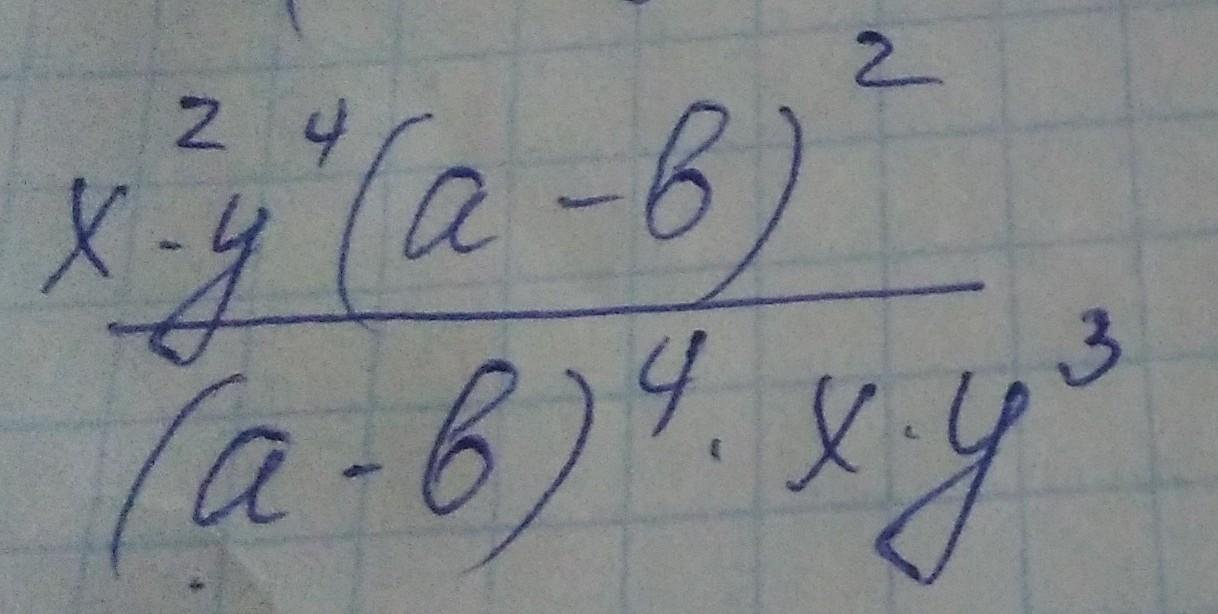 x² · y⁴ (a - b)²
(a - b)⁴ · x · y³